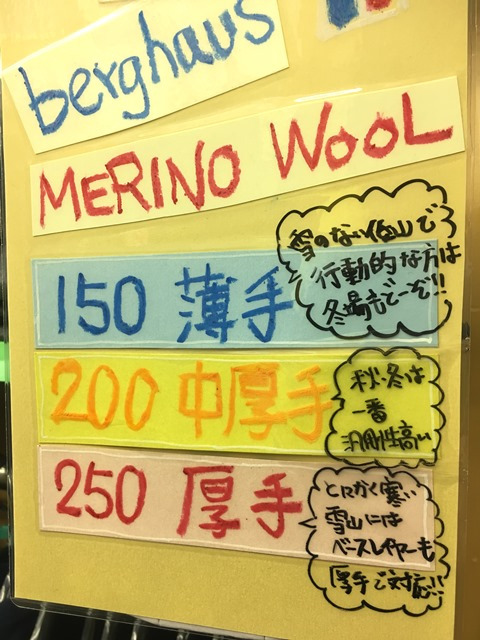 berghaus
MERINO WOOL
150 薄手
雪のない低山で
行動的な方は
冬場もどーぞ!!
200 中厚手
秋・冬は
一番
汎用性高い
250 厚手
とにかく寒い
雪山には
ベースレイヤーも
厚手で対応!!